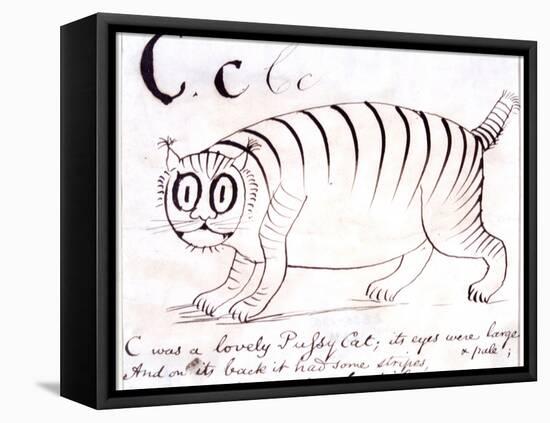 C. c C c
C was a lovely Pufsy Cat; its eyes were large
& pale;
And on its back it had some stripes,